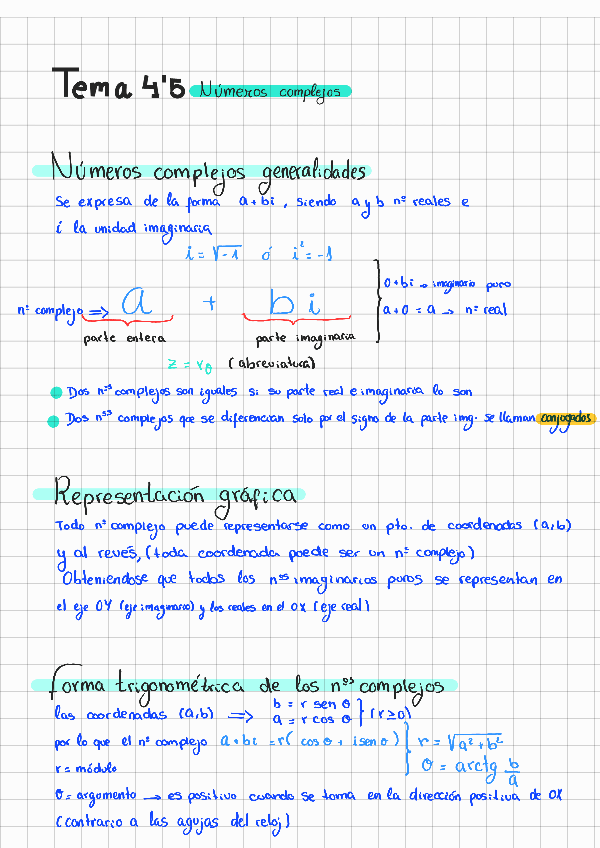 Tema 4'5 Números complejos
Números complejos generalidades
Se expresa de la forma a+bi, siendo a y b nº reales e
i la unidad imaginaria
i = √-1 ó i² = -1
nº complejo => a + bi
0+bi → imaginario puro
a+0 = a → nº real
parte entera parte imaginaria
z = rθ (abreviatura)
Dos nºs complejos son iguales si su parte real e imaginaria lo son
Dos nºs complejos que se diferencian solo por el signo de la parte img. se llaman conjugados
Representación gráfica
Todo nº complejo puede representarse como un pto. de coordenadas (a,b)
y al revés, (toda coordenada puede ser un nº complejo)
Obteniendose que todos los nºs imaginarios puros se representan en
el eje OY (eje imaginario) y los reales en el OX (eje real)
forma trigonométrica de los nºs complejos
las coordenadas (a,b) => b = r sen θ
a = r cos θ } (r≥0)
por lo que el nº complejo a+bi = r( cos θ + i sen θ) r = √a²+b²
r = módulo θ = arctg b/a
θ = argomento → es positivo cuando se toma en la dirección positiva de OX
(contrario a las agujas del reloj)